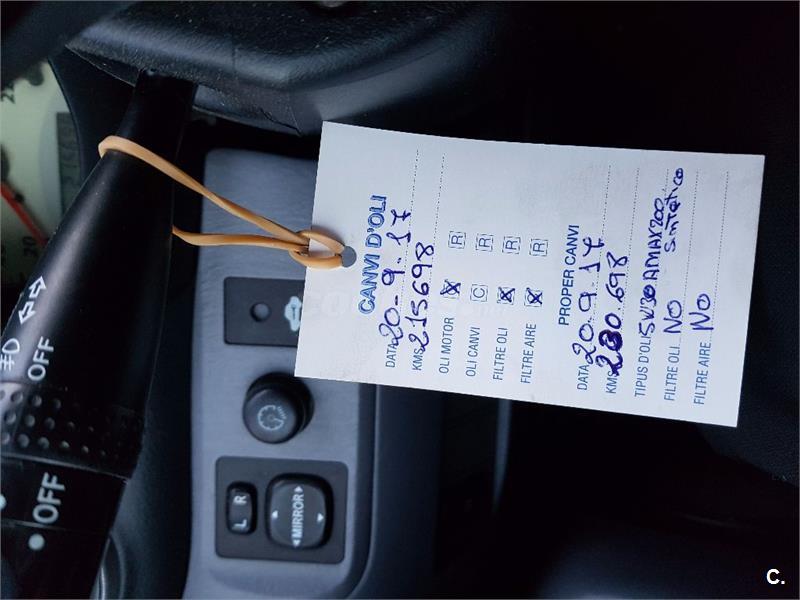 CANVI D'OLI
DATA 20-9-17
KMS 215698
OLI MOTOR X R
OLI CANVI C R
FILTRE OLI X R
FILTRE AIRE X R
PROPER CANVI
DATA 20.9.17
KMS 230.698
TIPUS D'OLI 5W30
SinTÉtico
FILTRE OLI NO
FILTRE AIRE NO
OFF
OFF
L R
MIRROR
20
C.